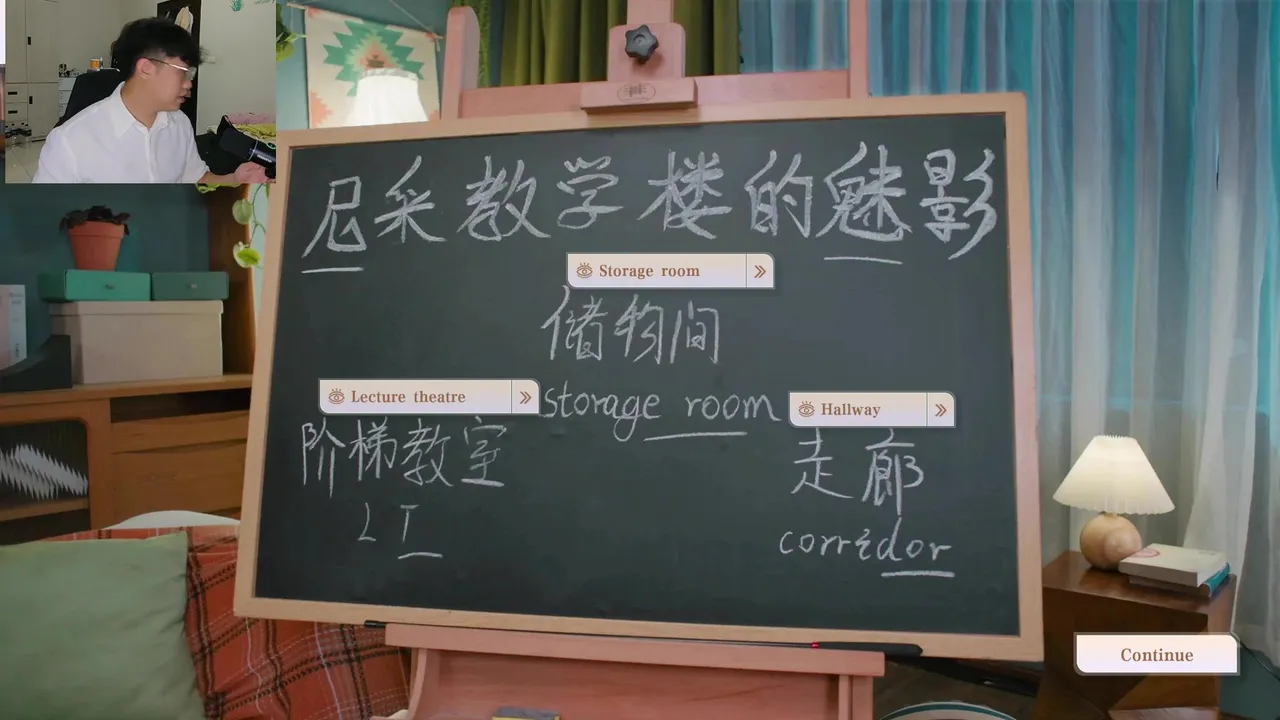 尼采教学楼的魅影
Storage room
储物间
storage room
Lecture theatre
阶梯教室
LT
Hallway
走廊
corridor
Continue